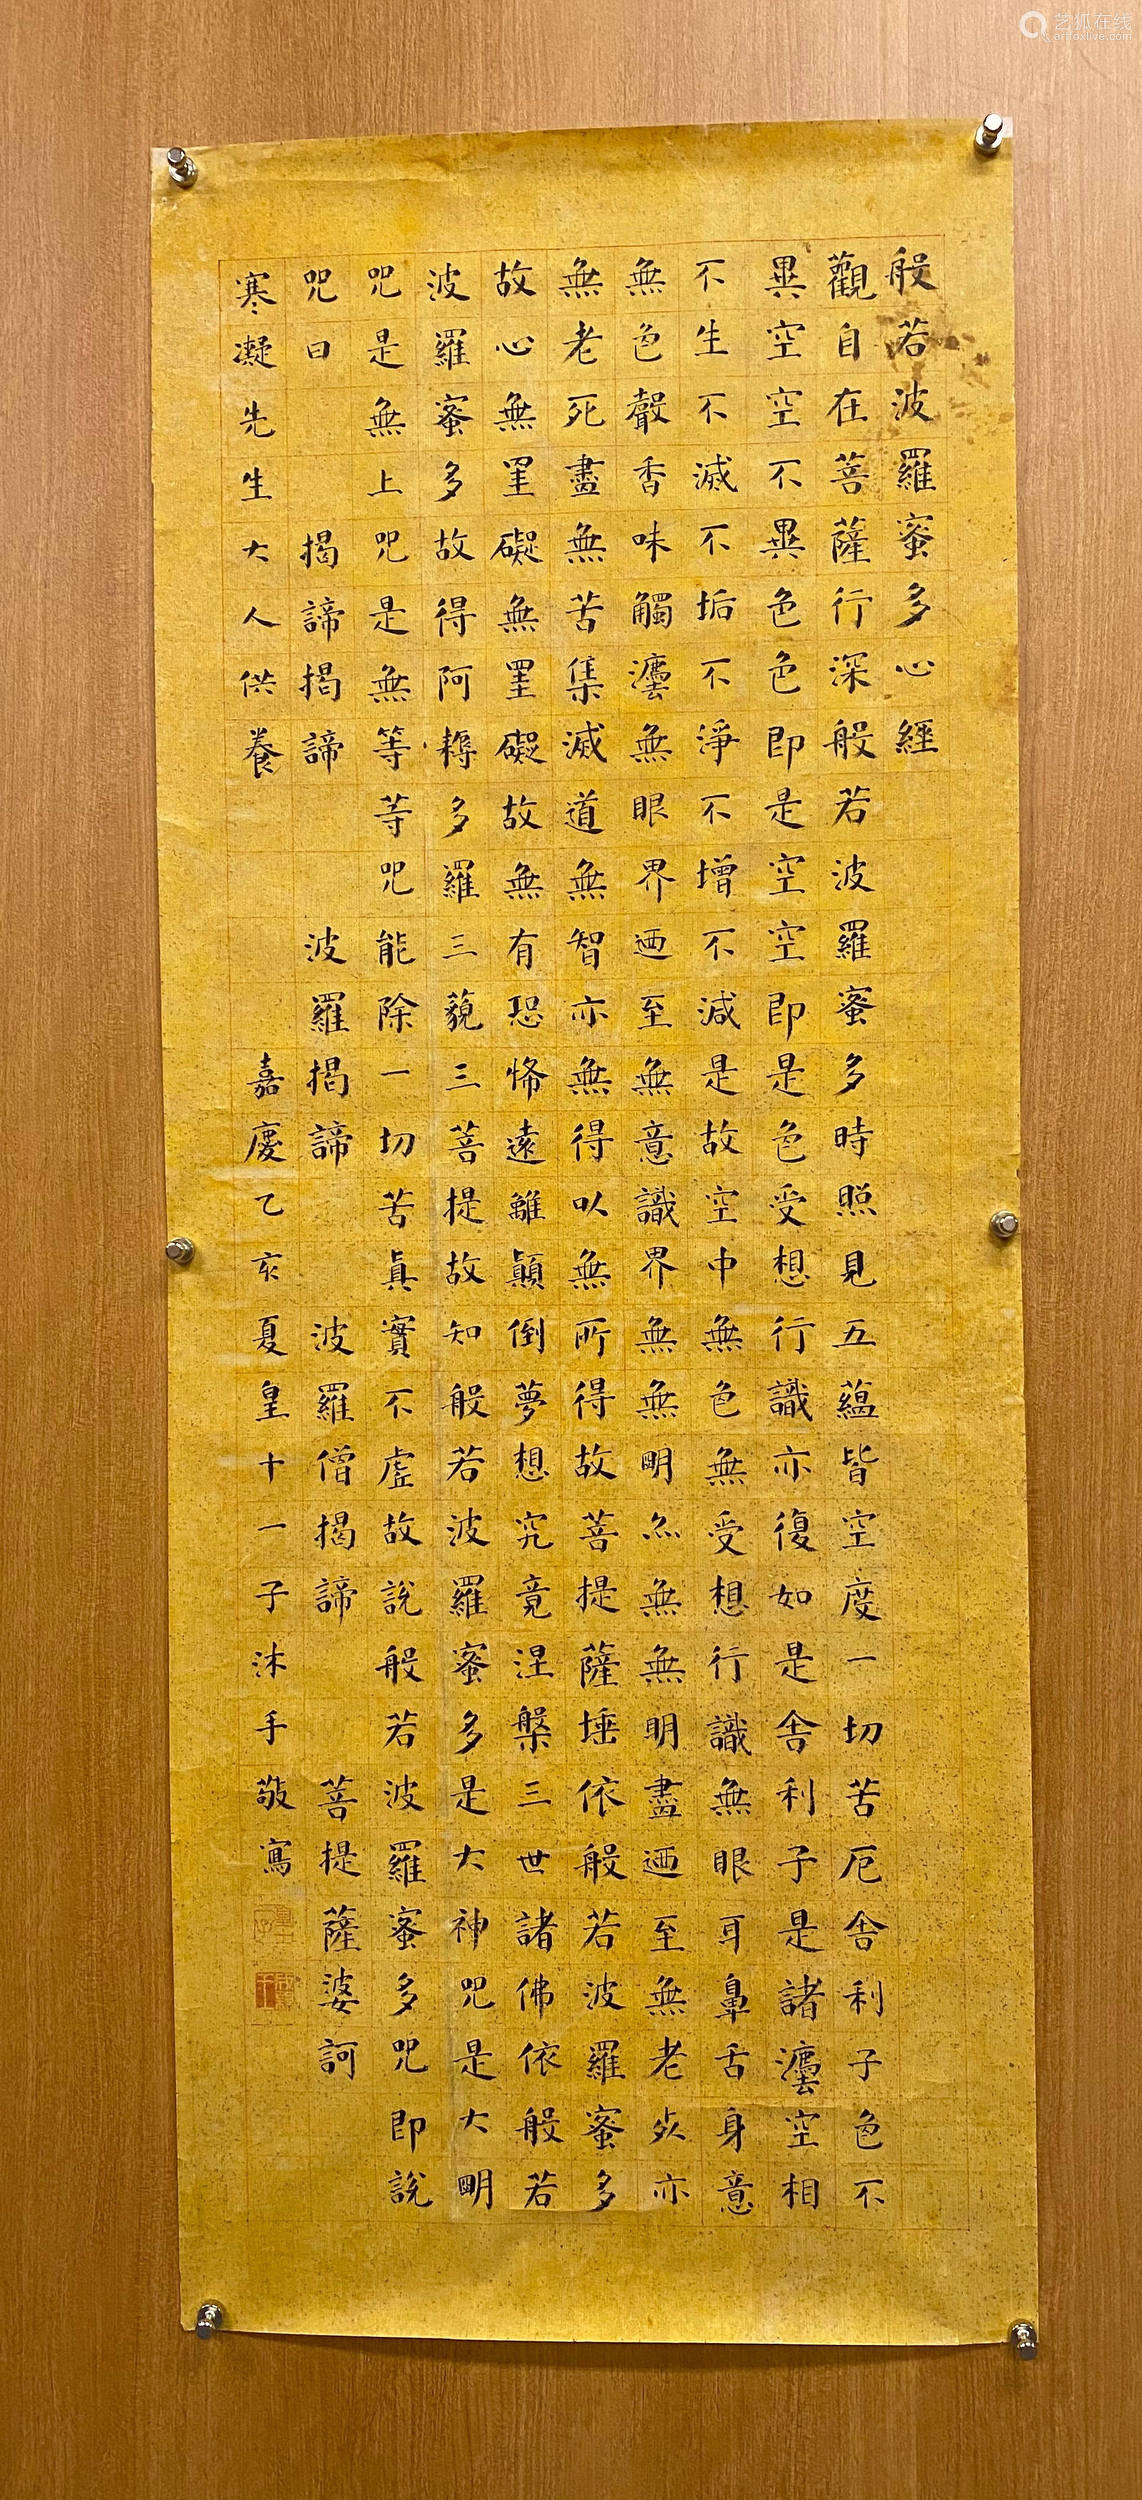 般若波羅蜜多心經
觀自在菩薩行深般若波羅蜜多時照見五蘊皆空度一切苦厄舎利子色不
異空空不異色色即是空空即是色受想行識亦復如是舎利子是諸灋空相
不生不滅不垢不淨不增不減是故空中無色無受想行識無眼耳鼻舌身意
無色聲香味觸灋無眼界迺至無意識界無無明亦無無明盡迺至無老死亦
無老死盡無苦集滅道無智亦無得以無所得故菩提薩埵依般若波羅蜜多
故心無罣礙無罣礙故無有恐怖遠離顛倒夢想究竟涅槃三世諸佛依般若
波羅蜜多故得阿耨多羅三藐三菩提故知般若波羅蜜多是大神咒是大明
咒是無上咒是無等等咒能除一切苦真實不虛故說般若波羅蜜多咒即說
咒曰 揭諦揭諦 波羅揭諦 波羅僧揭諦 菩提薩婆訶
寒凝先生大人供養 嘉慶乙亥夏皇十一子沐手敬寫
艺狐在线
artfoxlive.com